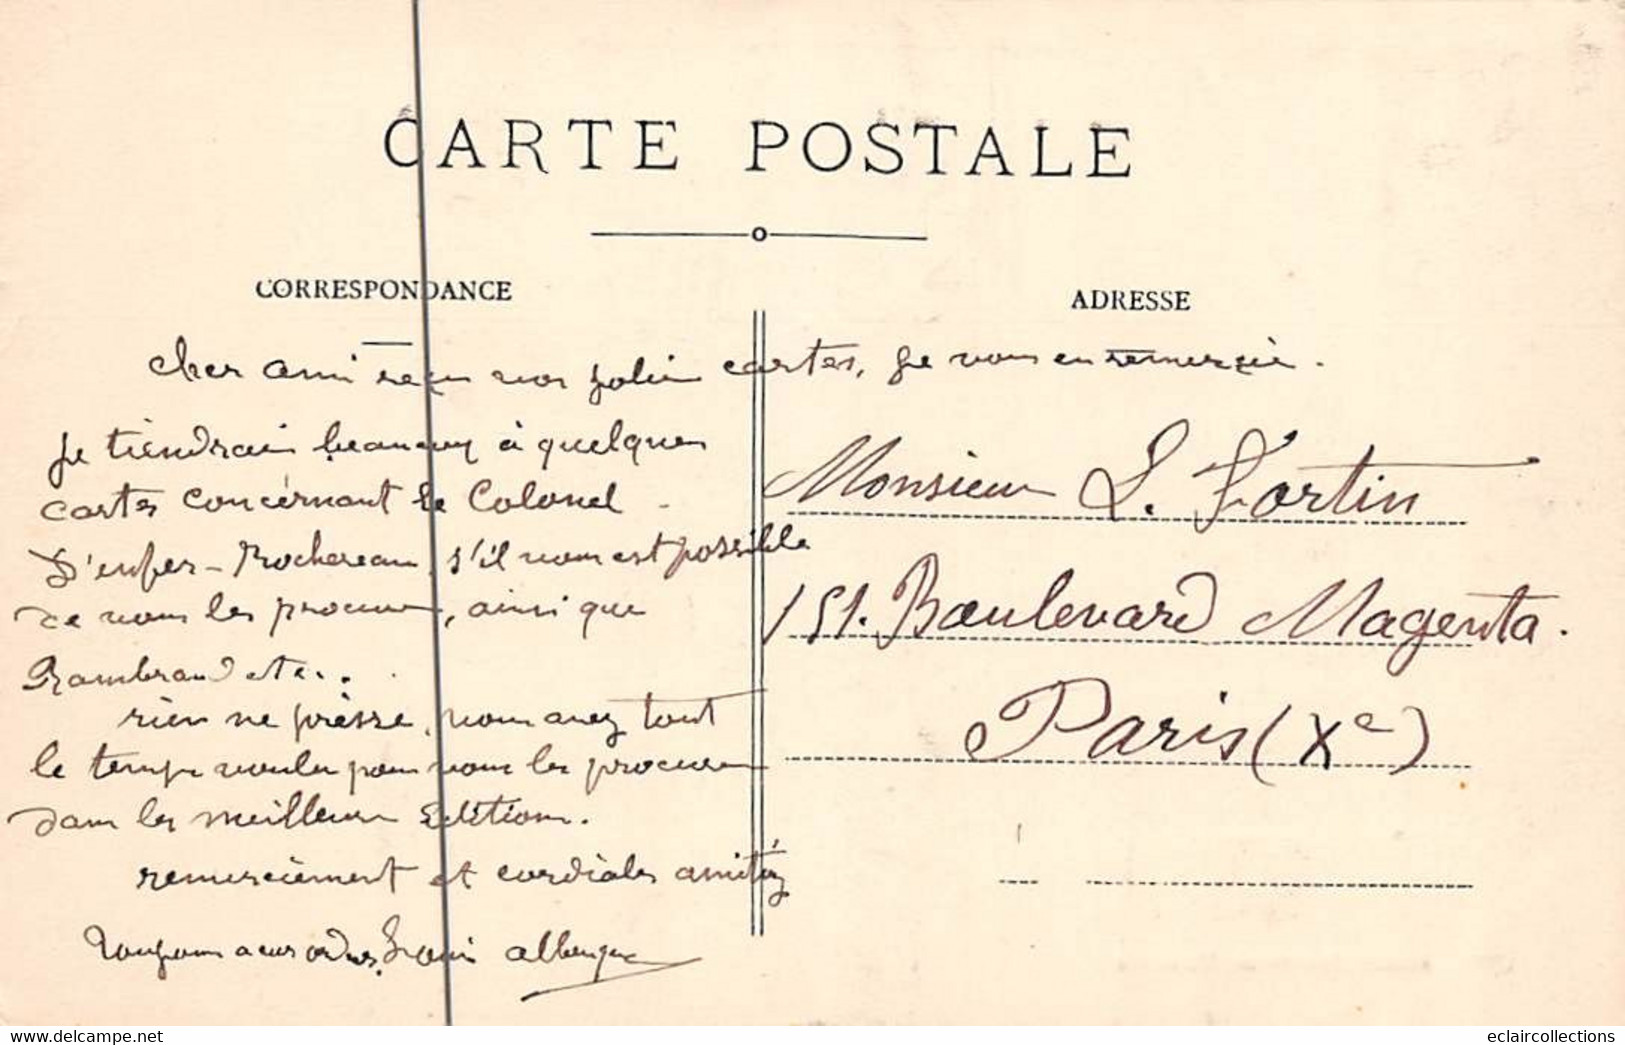 CARTE POSTALE
CORRESPONDANCE
ADRESSE
Cher ami reçu vos jolies cartes, je vous en remercie.
Je tiendrais beaucoup à quelques
cartes concernant le Colonel
D'enfer-Rochereau, s'il vous est possible
de vous les procurer, ainsi que
Rambrand etc..
rien ne presse, vous avez tout
le temps voulu pour vous les procurer
dans les meilleures Editions.
remerciement et cordiales amitiéz
Toujours a vos ordres,
Monsieur L. Fortin
151. Boulevard Magenta.
Paris (Xe)
www.delcampe.net
eclaircollections